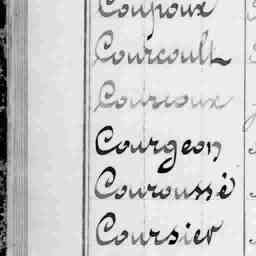 Coupoux
Courcoult
Courcoux
Courgeon
Couroussé
Coursier